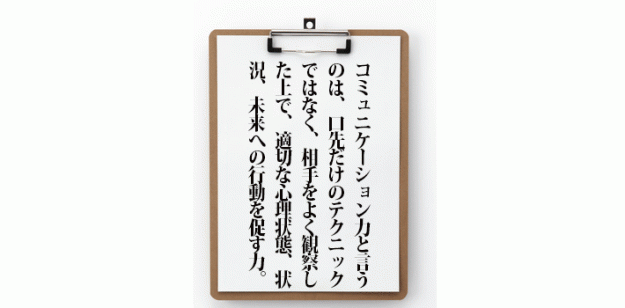 コミュニケーション力と言う
のは、口先だけのテクニック
ではなく、相手をよく観察し
た上で、適切な心理状態、状
況、未来への行動を促す力。